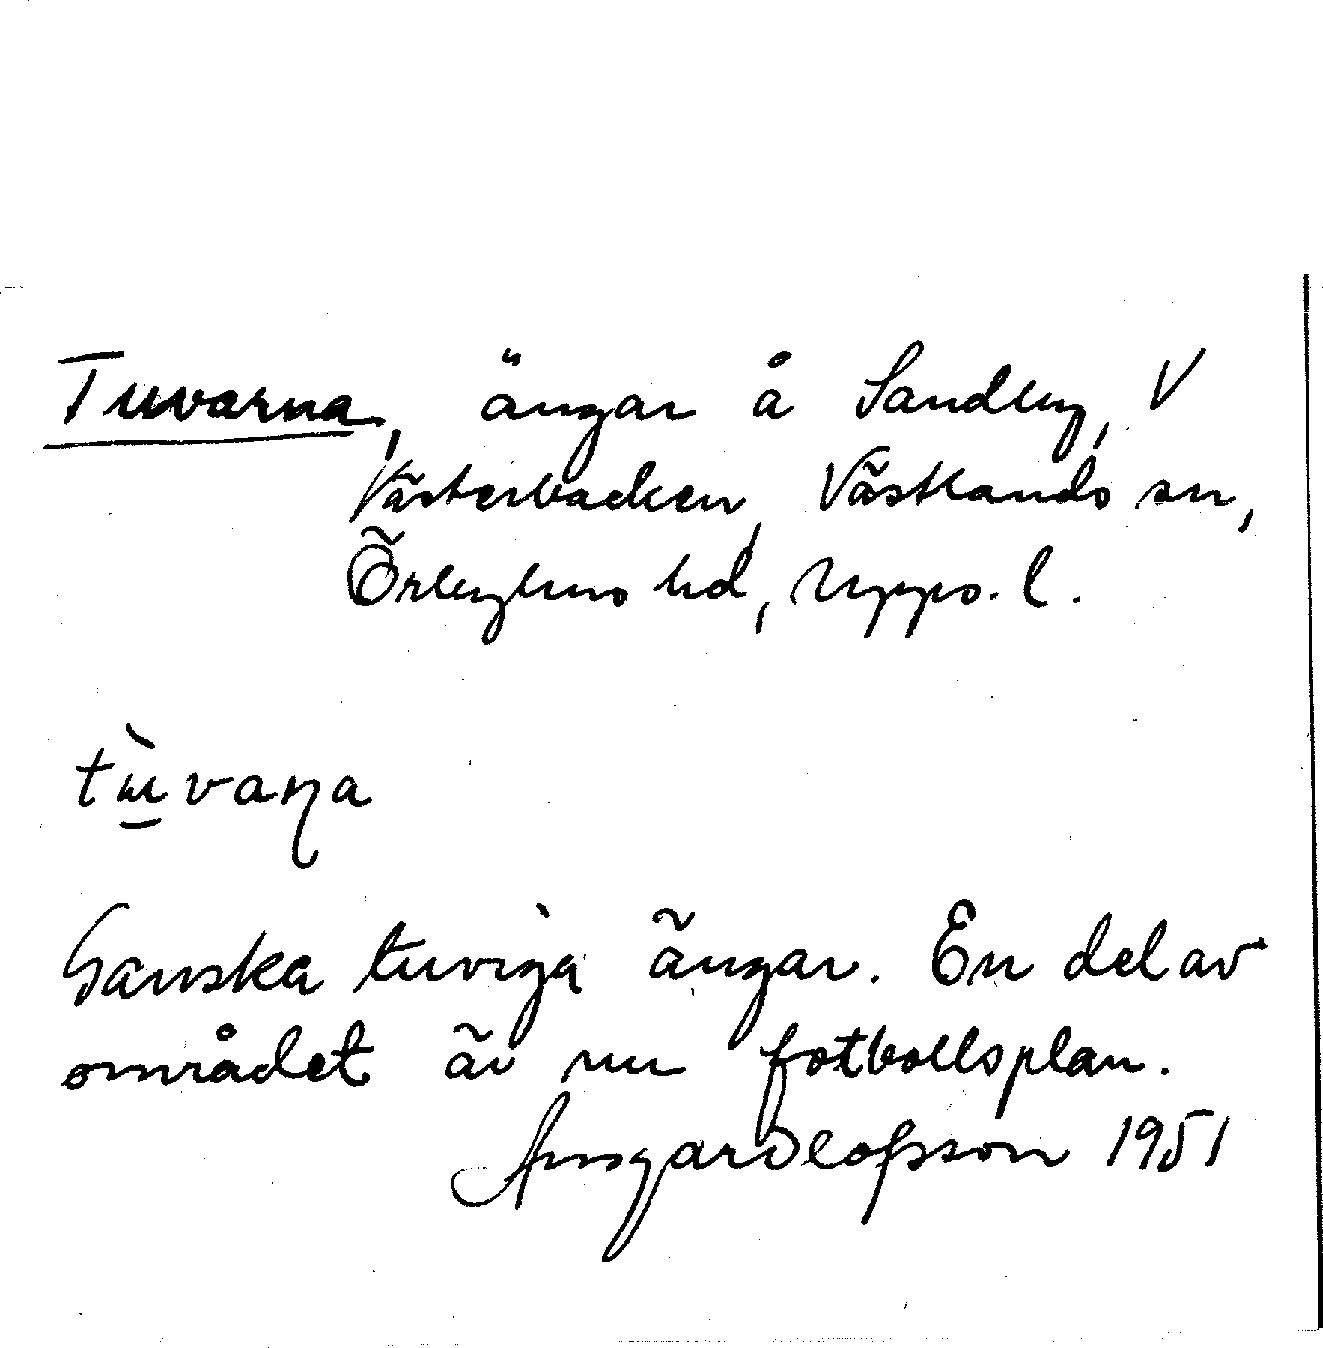 Tuvarna, ängar å Sandby, V
Västerbacken, Västlands sn,
Örbyhus hd, Upps. l.
tɯ̀vaɳa
Ganska tuviga ängar. En del av
området är nu fotbollsplan.
Ansgar Olofsson 1951